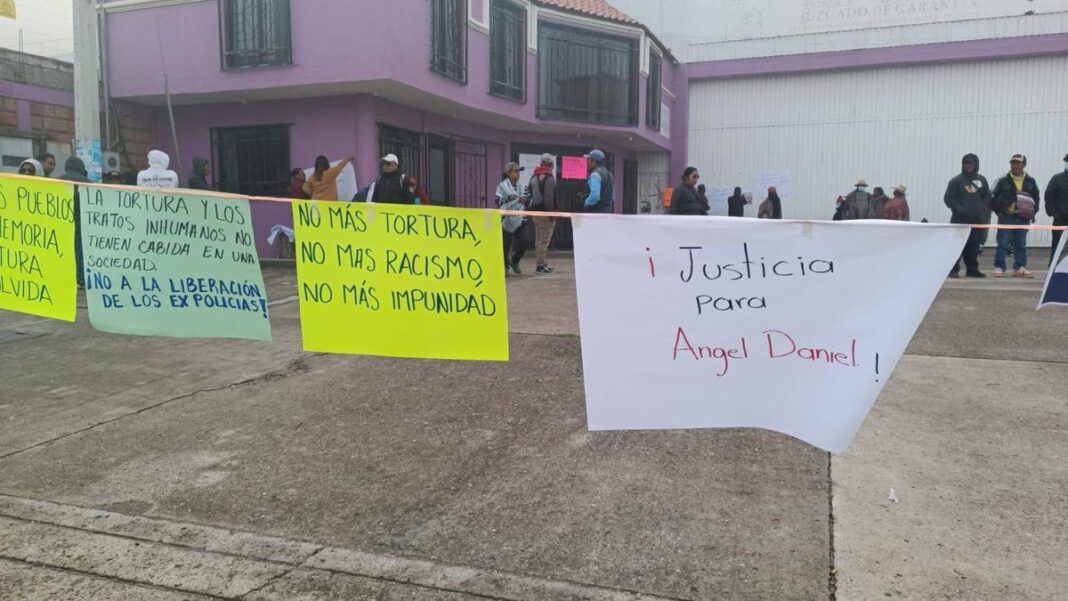 JUZGADO DE GARANTÍA
S PUEBLOS
MEMORIA,
TURA
OLVIDA
LA TORTURA Y LOS
TRATOS INHUMANOS NO
TIENEN CABIDA EN UNA
SOCIEDAD.
¡NO A LA LIBERACIÓN
DE LOS EX POLICIAS!
NO MÁS TORTURA,
NO MAS RACISMO,
NO MÁS IMPUNIDAD
¡ Justicia
para
Angel Daniel. !